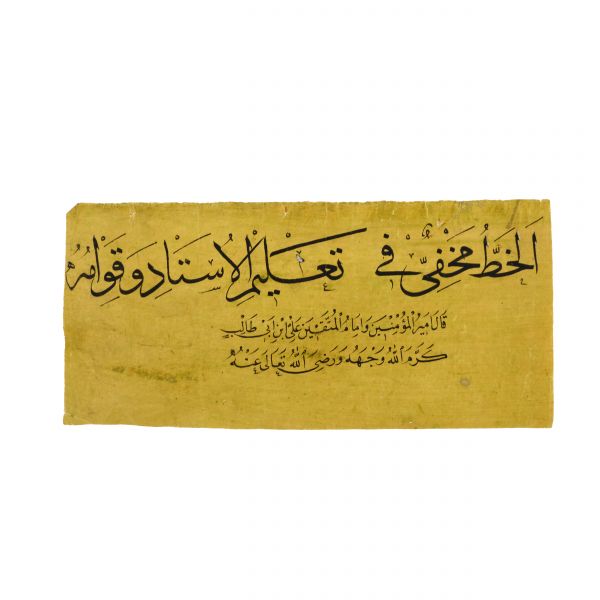 الخَطُّ مَخْفِىٌّ فِى تَعْلِيمِ الْاُسْتَادِ وَقِوَامُهُ
قَالَ اَمِيرُ الْمُؤْمِنِينَ وَاِمَامُ الْمُتَّقِينَ عَلِىُّ ابْنُ اَبِى طَالِبٍ
كَرَّمَ اللّٰهُ وَجْهَهُ وَرَضِىَ اللّٰهُ تَعَالٰى عَنْهُ